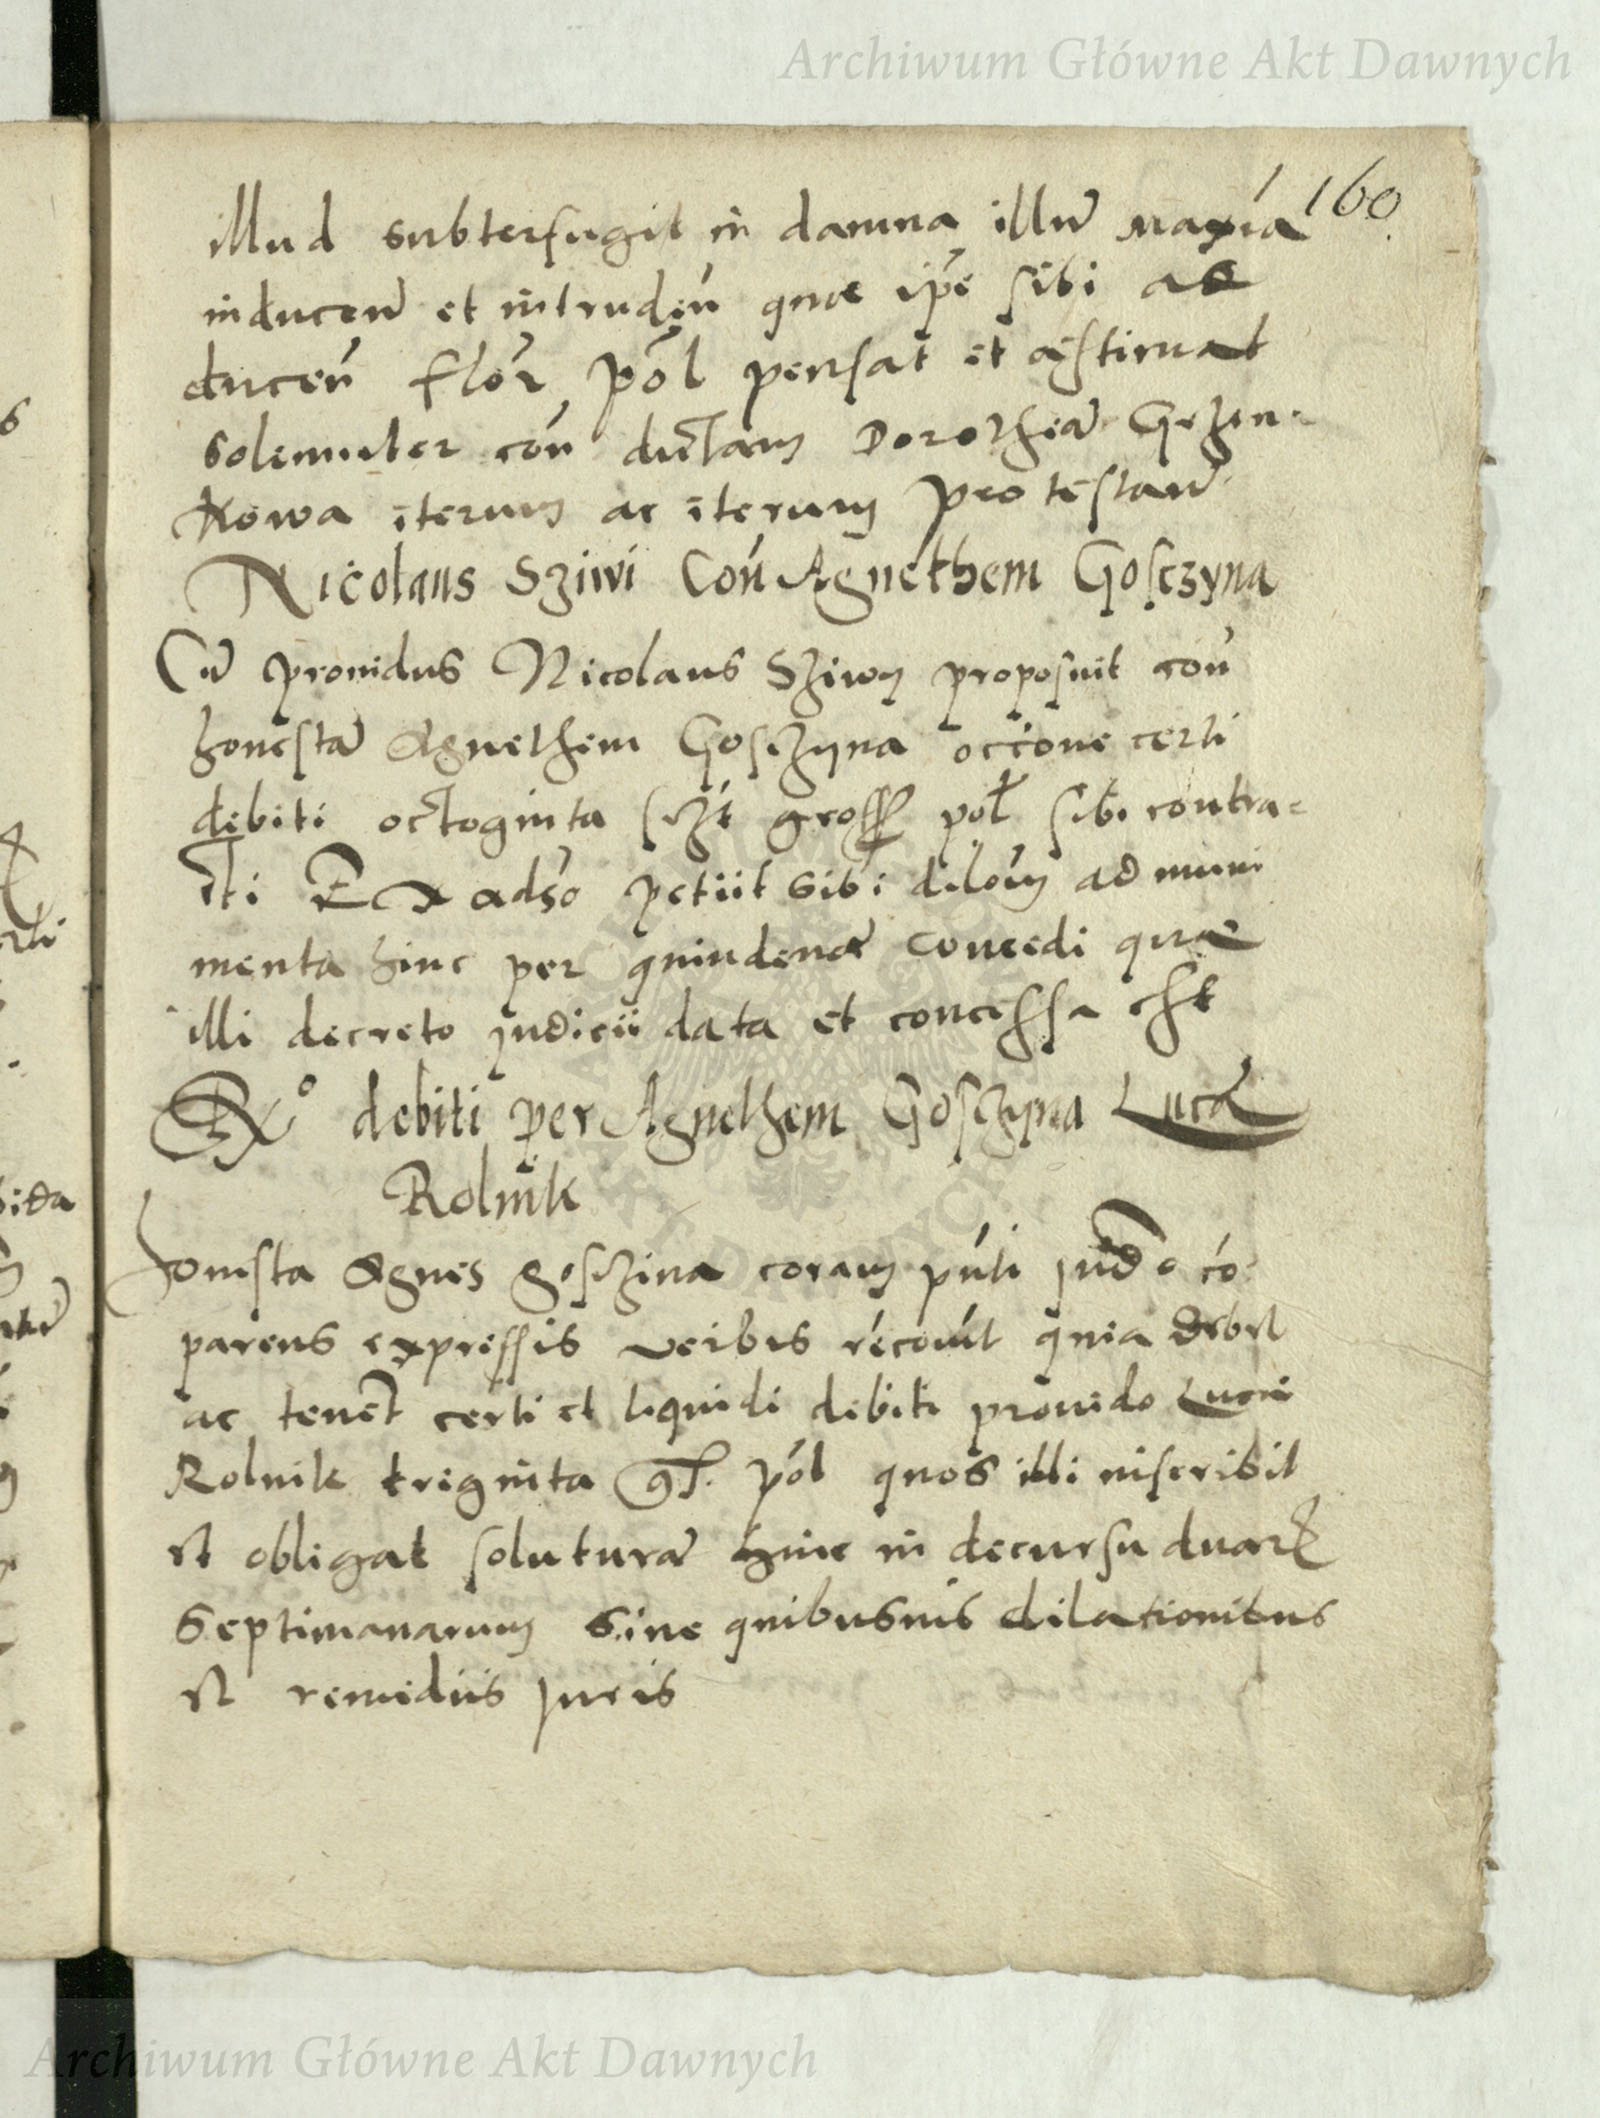 Archiwum Główne Akt Dawnych
160
illud subterfugit in damna illum maxia
inducen et intruden quae ipe sibi ad
ducen flor pol pensat et aestimat
solemniter con dictam Dorotheā Gezen-
kowa iterum ac iterum protestatur
Nicolaus Sziwi Con Agnethem Gosczyna
Cū providus Nicolaus Sziwy proposuit con
honestā Agnethem Gosczyna occōne certi
debiti octoginta sezt gross pol sibi contra=
cti Ex adso petiit sibi dilom ad muni
menta hinc per quindenā concedi quae
illi decreto judicii data et concessa est
Rxº debiti per Agnethem Gosczyna Lucā
Rolnik
Honesta Agnes goszina coram pnti judo co
parens expressis verbis recovit quia debet
ac tenet certi et liquidi debiti provido Lucae
Rolnik triginta gr. pol quos illi inscribit
et obligat soluturā hinc in decursu duarū
septimanarum sine quibusvis dilationibus
et remediis juris
Archiwum Główne Akt Dawnych